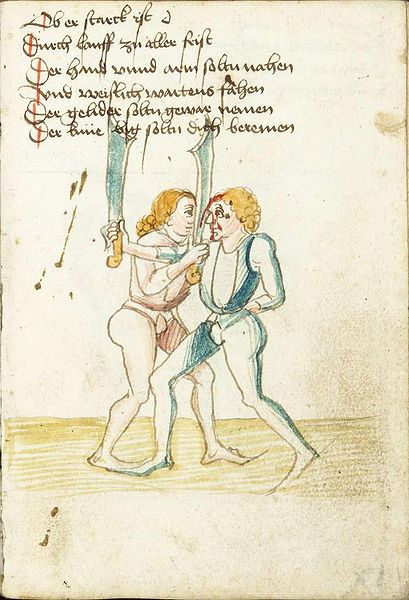 Ob er starck ist
Durch lauff zu aller frist
Der hand vnnd arm soltu nahen
Vnd weislich wartens fahen
Der gelider soltu gewar nemen
Der knie bug soltu dich beremen